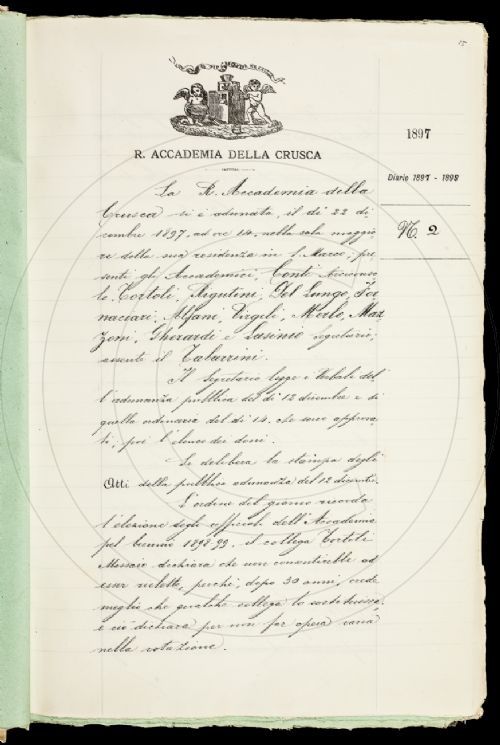 15
R. ACCADEMIA DELLA CRUSCA
1897
Diario 1897 - 1898
N. 2
La R. Accademia della
Crusca si è adunata, il dì 22 di
cembre 1897, ad ore 14, nella sala maggio
re della sua residenza in S. Marco; pre
senti gli Accademici, Conti Arciconso
lo, Tortoli, Rigutini, Del Lungo, For
naciari, Alfani, Virgili, Merlo, Maz
zoni, Gherardi e Lasinio Segretario;
assente il Tabarrini.
Il Segretario legge i Verbali del
l'adunanza pubblica del dì 12 dicembre e di
quella ordinaria del dì 14, che sono approva
ti; poi l'elenco dei doni.
Si delibera la stampa degli
Atti della pubblica adunanza del 12 dicembre.
L'ordine del giorno ricorda
l'elezione degli officiali dell'Accademia
pel biennio 1898-99. il collega Tortoli
Massaio dichiara che non consentirebbe ad
esser rieletto, perchè, dopo 30 anni, crede
meglio che qualche collega lo sostituisca,
e ciò dichiara per non far opera vana
nella votazione.